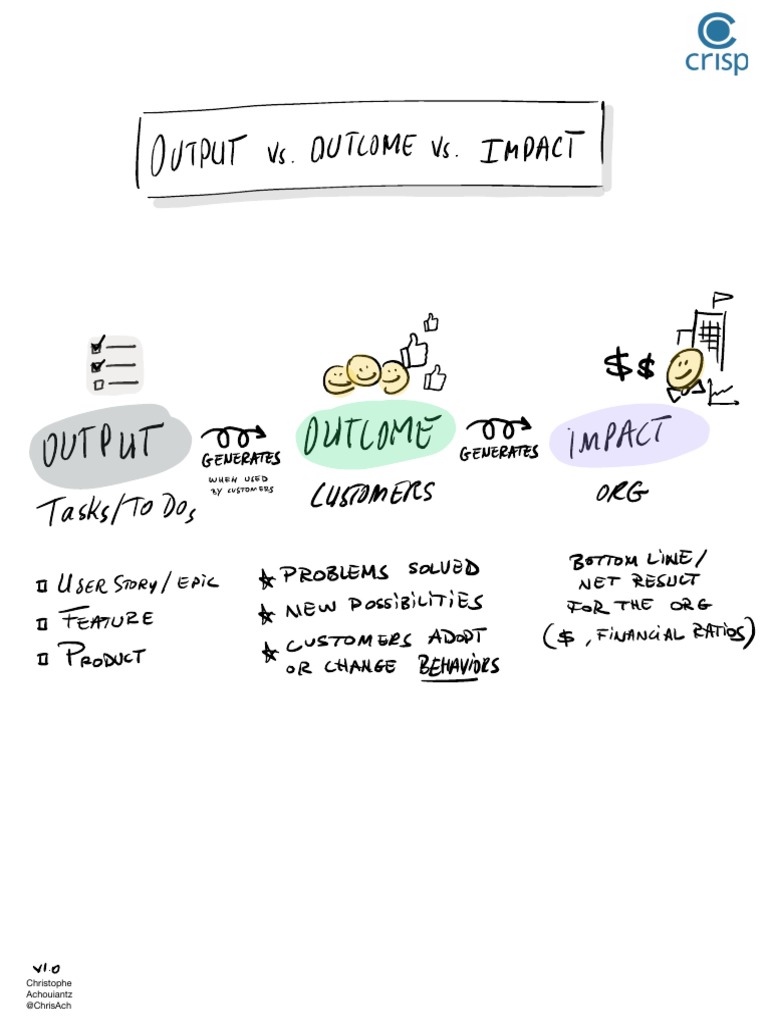 crisp
OUTPUT vs. OUTCOME vs. IMPACT
$ $
OUTPUT
GENERATES
WHEN USED
BY CUSTOMERS
OUTCOME
GENERATES
IMPACT
Tasks/To Dos
CUSTOMERS
ORG
USER STORY/EPIC
FEATURE
PRODUCT
PROBLEMS SOLVED
NEW POSSIBILITIES
CUSTOMERS ADOPT
OR CHANGE BEHAVIORS
BOTTOM LINE/
NET RESULT
FOR THE ORG
($, FINANCIAL RATIOS)
v1.0
Christophe
Achouiantz
@ChrisAch